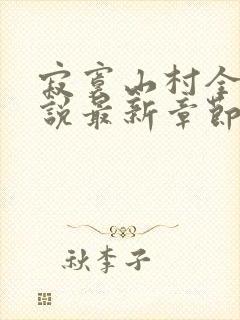 寂寞山村全
說最新章節
秋李子